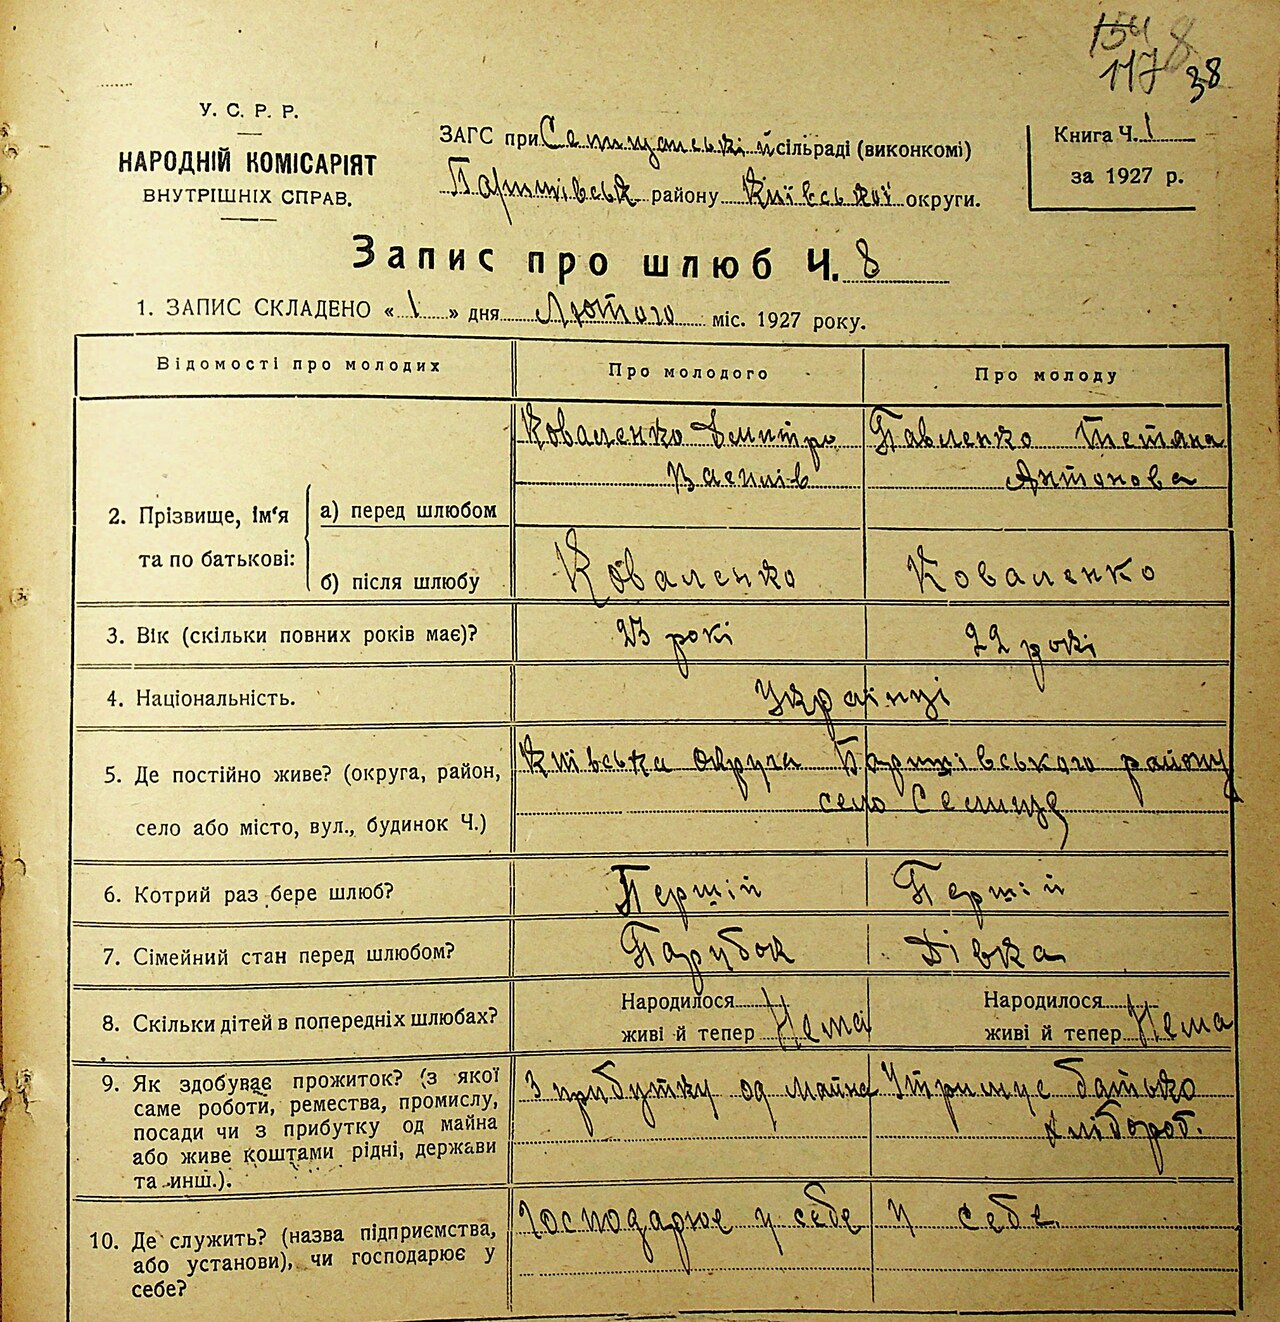 154 8
117 38
У. С. Р. Р.
НАРОДНІЙ КОМІСАРІЯТ
ВНУТРІШНІХ СПРАВ.
ЗАГС при Селищанській сільраді (виконкомі)
Баришівськ району Київської округи.
Книга Ч. 1
за 1927 р.
Запис про шлюб Ч. 8
1. ЗАПИС СКЛАДЕНО « 1 » дня Лютого міс. 1927 року.
Відомості про молодих Про молодого Про молоду
2. Прізвище, ім'я та по батькові:
а) перед шлюбом
Коваленко Дмитро
Василів
Павленко Тетяна
Антонова
б) після шлюбу
Коваленко
Коваленко
3. Вік (скільки повних років має)?
23 рокі
22 рокі
4. Національність.
Українці
5. Де постійно живе? (округа, район,
село або місто, вул., будинок Ч.)
Київська округа Баришівського району
село Селище
6. Котрий раз бере шлюб?
Першій
Першій
7. Сімейний стан перед шлюбом?
Парубок
Дівка
8. Скільки дітей в попередніх шлюбах?
Народилося
живі й тепер Нема
Народилося
живі й тепер Нема
9. Як здобуває прожиток? (з якої
саме роботи, ремества, промислу,
посади чи з прибутку од майна
або живе коштами рідні, держави
та инш.).
З прибутку од майна
Утримує батько
хлібороб.
10. Де служить? (назва підприємства,
або установи), чи господарює у
себе?
Господарює у себе
У себе